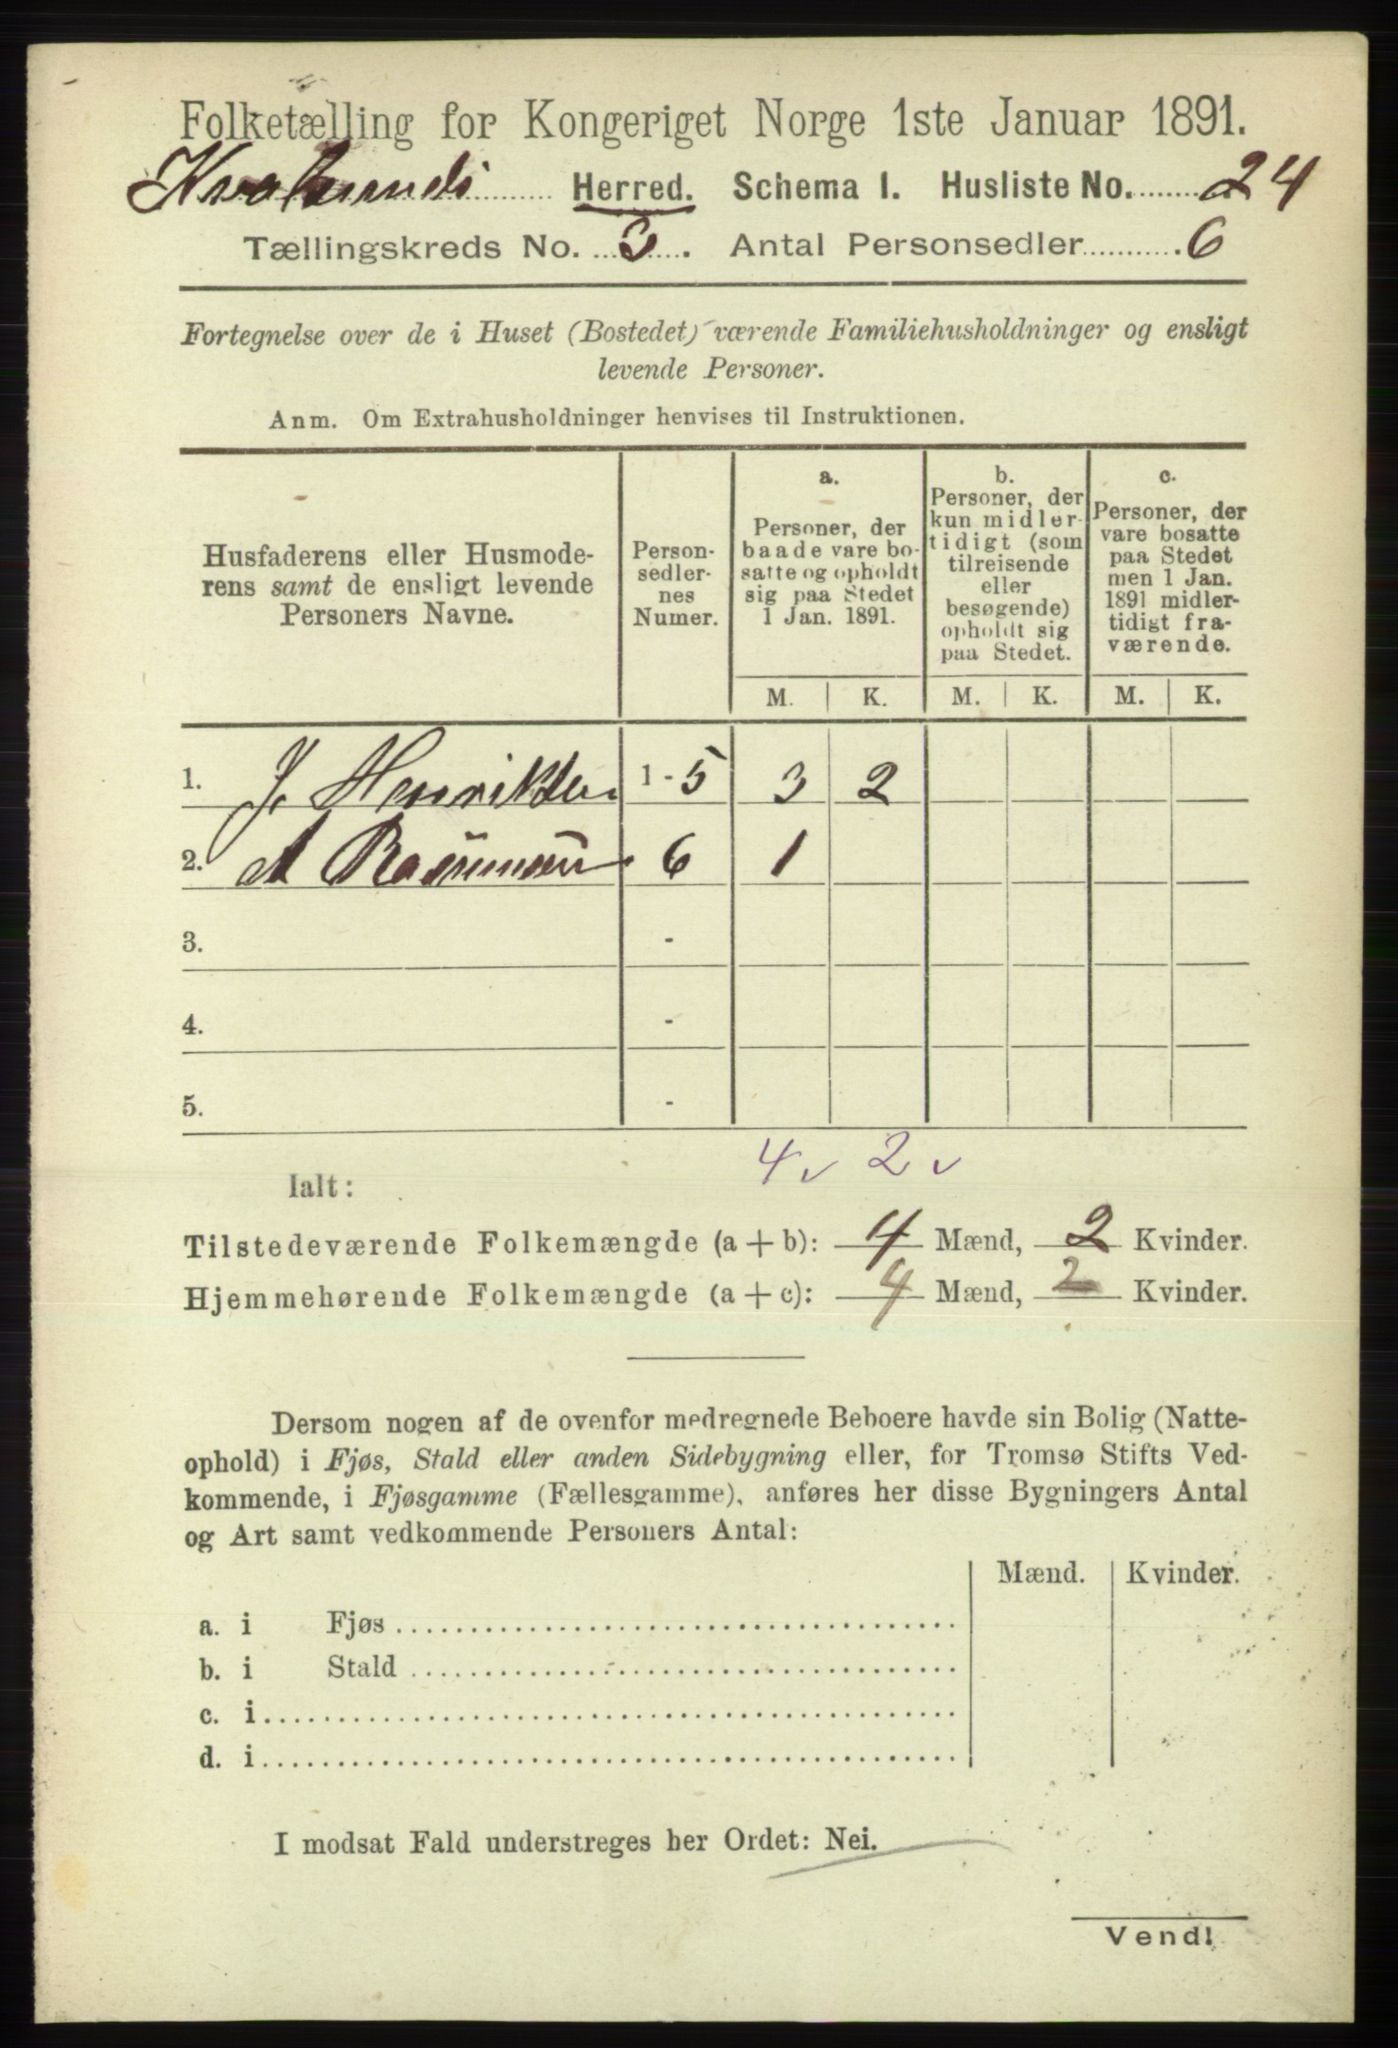 Folketælling for Kongeriget Norge 1ste Januar 1891.
Kvalsunds Herred. Schema I. Husliste No. 24
Tællingskreds No. 3. Antal Personsedler 6
Fortegnelse over de i Huset (Bostedet) værende Familiehusholdninger og ensligt
levende Personer.
Anm. Om Extrahusholdninger henvises til Instruktionen.
Husfaderens eller Husmode-
rens samt de ensligt levende
Personers Navne.
Person-
sedler-
nes
Numer.
a.
Personer, der
baade vare bo-
satte og opholdt
sig paa Stedet
1 Jan. 1891.
b.
Personer, der
kun midler-
tidigt (som
tilreisende
eller
besøgende)
opholdt sig
paa Stedet.
c.
Personer, der
vare bosatte
paa Stedet
men 1 Jan.
1891 midler-
tidigt fra-
værende.
M. K. M. K. M. K.
1. J. Henriksen 1 - 5 3 2
2. A Rasmussen 6 1
3. -
4. -
5. -
4 v 2 v
Ialt:
Tilstedeværende Folkemængde (a + b): 4 Mænd, 2 Kvinder.
Hjemmehørende Folkemængde (a + c): 4 Mænd, 2 Kvinder.
Dersom nogen af de ovenfor medregnede Beboere havde sin Bolig (Natte-
ophold) i Fjøs, Stald eller anden Sidebygning eller, for Tromsø Stifts Ved-
kommende, i Fjøsgamme (Fællesgamme), anføres her disse Bygningers Antal
og Art samt vedkommende Personers Antal:
Mænd. Kvinder.
a. i Fjøs
b. i Stald
c. i
d. i
I modsat Fald understreges her Ordet: Nei.
Vend!